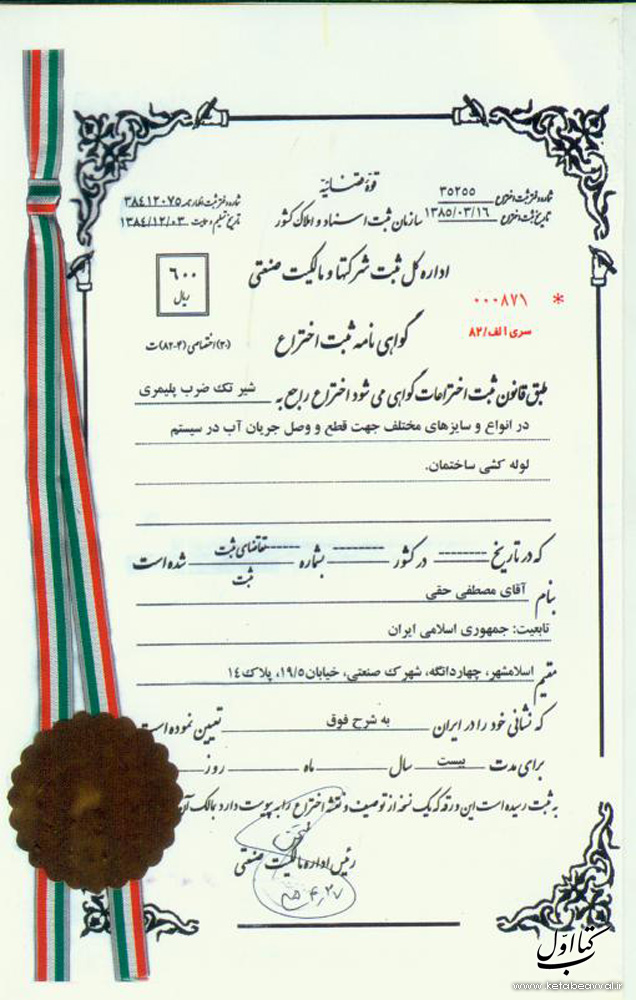 قوهٔ قضائیه
شماره دفتر ثبت اختراع ۳۵۲۵۵
تاریخ ثبت اختراع ۱۳۸۵/۰۳/۱۶
شماره دفتر ثبت اظهارنامه ۳۸۴۱۲۰۷۵
تاریخ تسلیم ۱۳۸۴/۱۲/۰۳
سازمان ثبت اسناد و املاک کشور
اداره کل ثبت شرکتها و مالکیت صنعتی
۶۰۰
ریال
* ۰۰۰۸۷۱
سری الف/۸۲
گواهی نامه ثبت اختراع
(۲۰) اختصاصی (۴-۸۲) ث
طبق قانون ثبت اختراعات گواهی می شود اختراع راجع به شیر تک ضرب پلیمری
در انواع و سایزهای مختلف جهت قطع و وصل جریان آب در سیستم
لوله کشی ساختمان.
که در تاریخ -------- در کشور -------- بشماره -------- تقاضای ثبت شده است
ثبت
بنام آقای مصطفی حقی
تابعیت: جمهوری اسلامی ایران
مقیم اسلامشهر، چهاردانگه، شهرک صنعتی، خیابان۱۹/۵، پلاک۱۴
که نشانی خود را در ایران به شرح فوق تعیین نموده است
برای مدت بیست سال ماه روز
به ثبت رسیده است این ورقه که یک نسخه از توصیف و نقشه اختراع را به پیوست دارد بمالک آن
رئیس اداره مالکیت صنعتی
کتاب اول
www.ketabeavval.ir